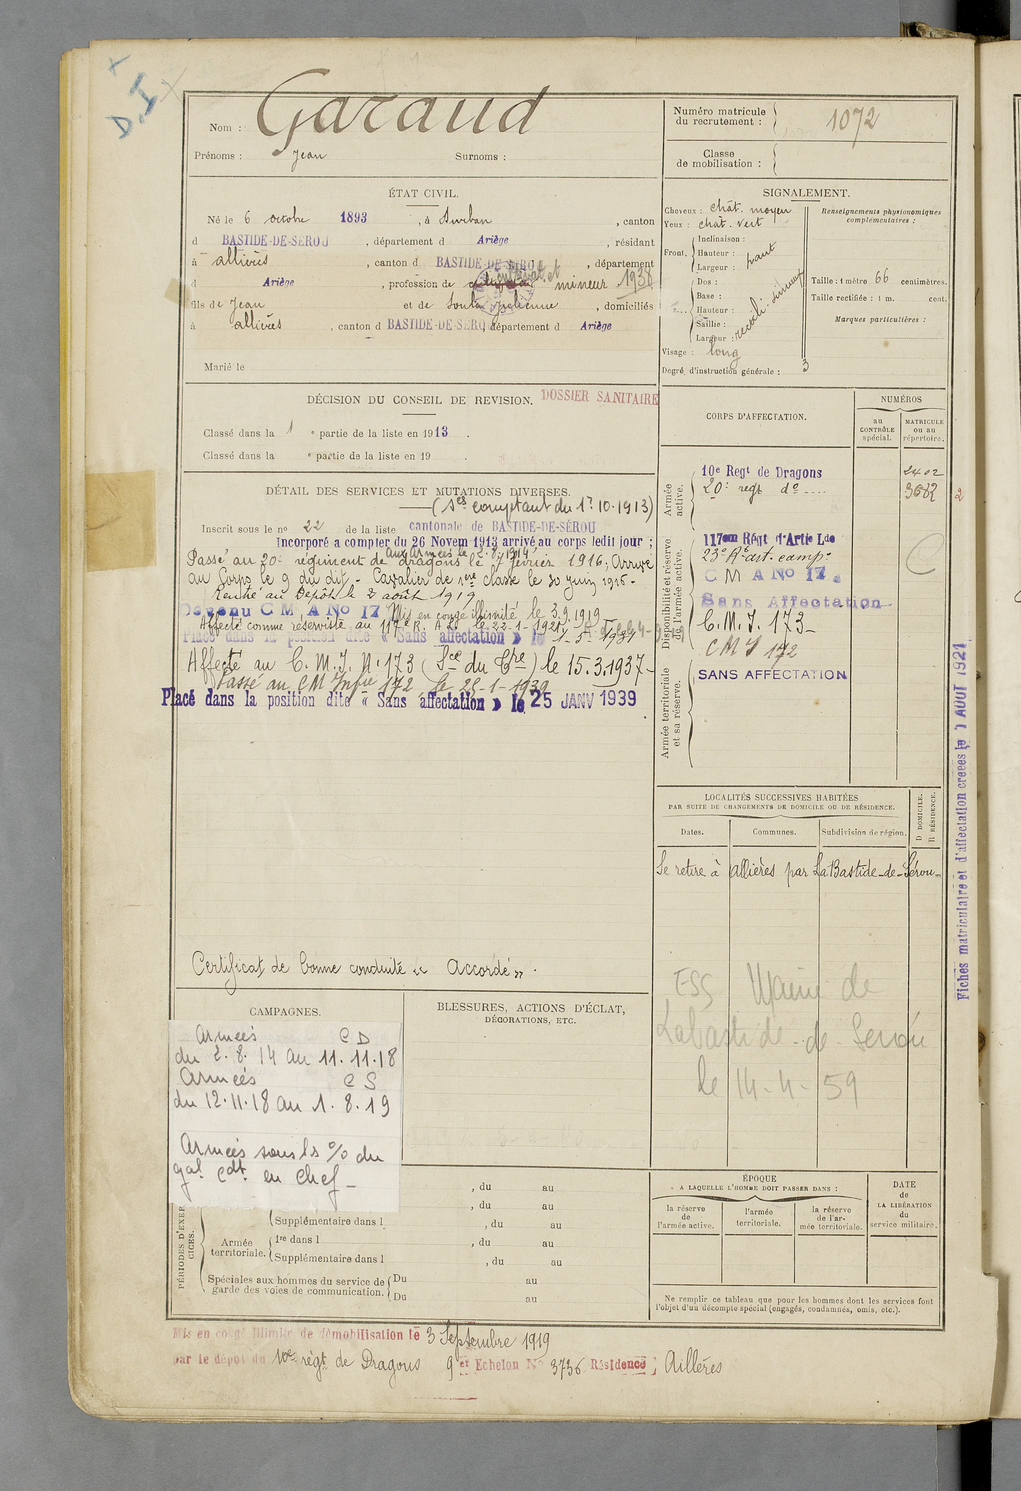 D.I
Nom : Garaud
Prénoms : Jean Surnoms :
Numéro matricule
du recrutement : 1072
Classe
de mobilisation :
ÉTAT CIVIL.
Né le 6 octobre 1893, à Durban, canton
d BASTIDE-DE-SEROU, département d Ariège, résidant
à allières, canton d BASTIDE-DE-SEROU, département
d Ariège, profession de cultivat. et mineur 1938
fils de Jean et de Soula Julienne, domiciliés
à allières, canton d BASTIDE-DE-SEROU département d Ariège
Marié le
SIGNALEMENT.
Cheveux : chât. moyen
Yeux : chât. vert
Front, Inclinaison :
Hauteur : haut
Largeur :
Dos :
Base :
Hauteur :
Saillie :
Largeur :
Visage : long
Degré d'instruction générale : 3
Renseignements physionomiques
complémentaires :
Taille : 1 mètre 66 centimètres.
Taille rectifiée : 1 m. cent.
Marques particulières :
DÉCISION DU CONSEIL DE REVISION. DOSSIER SANITAIRE
Classé dans la 1 e partie de la liste en 1913.
Classé dans la e partie de la liste en 19 .
DÉTAIL DES SERVICES ET MUTATIONS DIVERSES.
(Ses comptant du 1r.10.1913)
Inscrit sous le no 22 de la liste cantonale de BASTIDE-DE-SÉROU
Incorporé a compter du 26 Novem 1913 arrivé au corps ledit jour ;
aux Armées le 2.8.1914
Passé au 20e régiment de dragons le 7 février 1916, Arrivé
au Corps le 9 du dit - Cavalier de 1ère classe le 30 juin 1915 -
Rentré au Dépôt le 2 août 1919
Devenu C M A No 17 Mis en congé illimité le 3.9.1919
Affecté comme réserviste au 117e R. A. Lde le 22-1-1921
Placé dans la position dite « Sans affectation » le
Affecté au C.M.I. No 173 (Sce du Gre) le 15.3.1937 -
Passé au CM Infie 172 le 25-1-1939
Placé dans la position dite « Sans affectation » le 25 JANV 1939
Certificat de bonne conduite « Accordé ».
CORPS D'AFFECTATION.
NUMÉROS
au
CONTRÔLE
spécial.
MATRICULE
ou au
répertoire.
Armée
active.
10e Regt de Dragons 2402
20e regt do .... 3682
2
Disponibilité et réserve
de l'armée active.
117em Régt d'Artie Lde
23e Rt art. camp.
C M A No 17.
Sans Affectation
C.M.I. 173 -
CMI 172
Armée territoriale
et sa réserve.
SANS AFFECTATION
C
LOCALITÉS SUCCESSIVES HABITÉES
PAR SUITE DE CHANGEMENTS DE DOMICILE OU DE RÉSIDENCE.
Dates. Communes. Subdivision de région. D DOMICILE. R RÉSIDENCE.
Se retire à allières par La Bastide-de-Sérou -
ESS Mairie de
Labastide-de Serou
le 14-4-59
Fiches matriculaire et d'affectation créées le 1 AOUT 1921
CAMPAGNES.
Armées C D
du 2.8.14 au 11.11.18
Armées C S
du 12.11.18 au 1.8.19
Armées sous ls o/o du
gal. cdt. en chef -
BLESSURES, ACTIONS D'ÉCLAT,
DÉCORATIONS, ETC.
PÉRIODES D'EXERCICES.
, du au
, du au
Supplémentaire dans l , du au
Armée
territoriale.
1re dans l , du au
Supplémentaire dans l , du au
Spéciales aux hommes du service de
garde des voies de communication.
Du au
Du au
ÉPOQUE
A LAQUELLE L'HOMME DOIT PASSER DANS :
la réserve
de
l'armée active.
l'armée
territoriale.
la réserve
de l'ar-
mée territoriale.
DATE
de
LA LIBÉRATION
du
service militaire.
Ne remplir ce tableau que pour les hommes dont les services font
l'objet d'un décompte spécial (engagés, condamnés, omis, etc.).
Mis en congé illimité de démobilisation le 3 Septembre 1919
par le dépôt du 10e régt de Dragons 9 er Echelon No 3736 Résidence Aillères